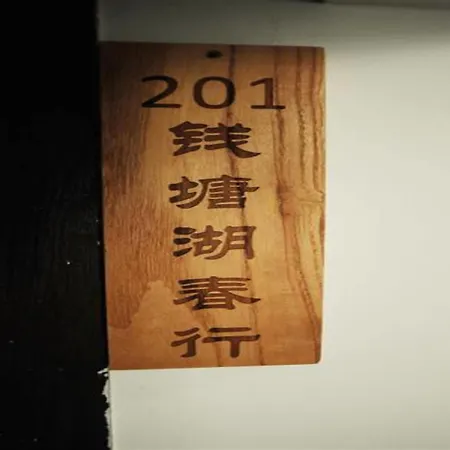 201
钱塘湖春行